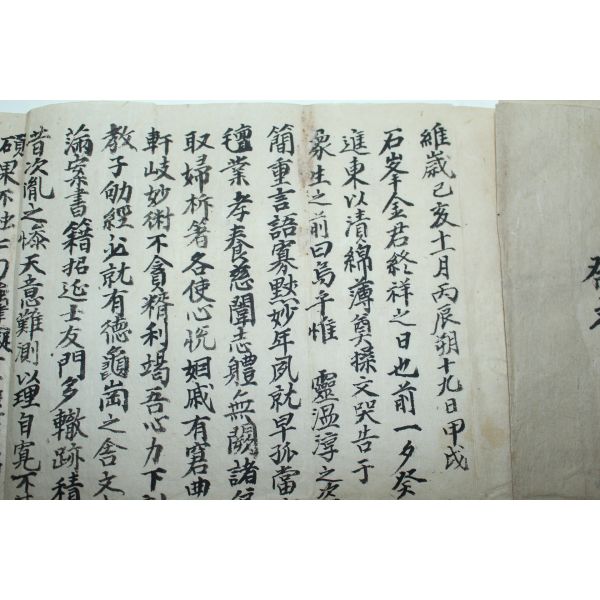 維歲己亥十一月丙辰朔十九日甲戌
石峯金君終祥之日也前一夕癸
進東以漬綿薄奠操文哭告于
象生之前曰烏乎惟 靈溫淳之姿
簡重言語寡默妙年夙就早孤當
氊業孝養慈闈志體無闕諸
取婦析箸各使心悅姻戚有窘曲
軒岐妙術不貪猾利竭吾心力下
敎子劬經必就有德龜崗之舍文
滿案書籍招延士友門多轍跡積
昔次胤之慘天意難測以理自寬不
碩果不